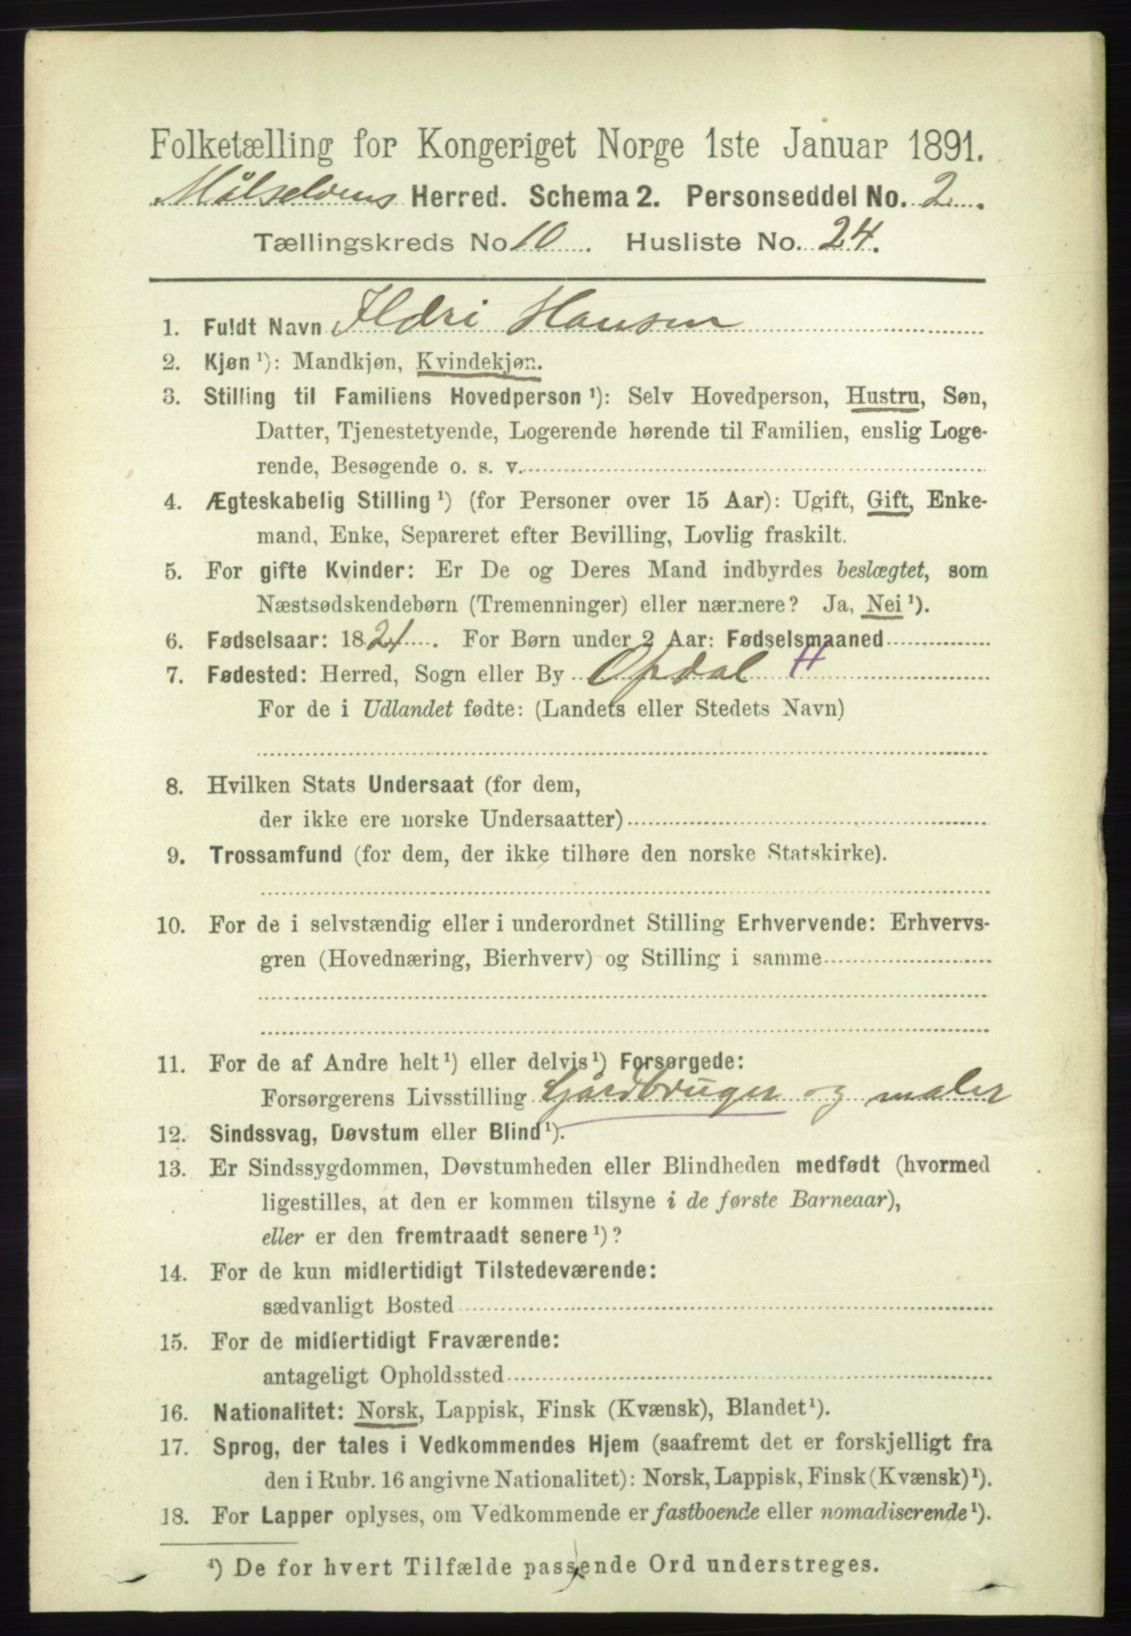 Folketælling for Kongeriget Norge 1ste Januar 1891.
Målselvens Herred. Schema 2. Personseddel No. 2.
Tællingskreds No 10. Husliste No. 24.
1. Fuldt Navn Ildri Hansen
2. Kjøn ¹): Mandkjøn, Kvindekjøn.
3. Stilling til Familiens Hovedperson ¹): Selv Hovedperson, Hustru, Søn,
Datter, Tjenestetyende, Logerende hørende til Familien, enslig Loge-
rende, Besøgende o. s. v.
4. Ægteskabelig Stilling ¹) (for Personer over 15 Aar): Ugift, Gift, Enke-
mand, Enke, Separeret efter Bevilling, Lovlig fraskilt.
5. For gifte Kvinder: Er De og Deres Mand indbyrdes beslægtet, som
Næstsødskendebørn (Tremenninger) eller nærmere? Ja, Nei ¹).
6. Fødselsaar: 1824. For Børn under 2 Aar: Fødselsmaaned
7. Fødested: Herred, Sogn eller By Opdal H
For de i Udlandet fødte: (Landets eller Stedets Navn)
8. Hvilken Stats Undersaat (for dem,
der ikke ere norske Undersaatter)
9. Trossamfund (for dem, der ikke tilhøre den norske Statskirke).
10. For de i selvstændig eller i underordnet Stilling Erhvervende: Erhvervs-
gren (Hovednæring, Bierhverv) og Stilling i samme
11. For de af Andre helt ¹) eller delvis ¹) Forsørgede:
Forsørgerens Livsstilling Gårdbruger og maler
12. Sindssvag, Døvstum eller Blind ¹).
13. Er Sindssygdommen, Døvstumheden eller Blindheden medfødt (hvormed
ligestilles, at den er kommen tilsyne i de første Barneaar),
eller er den fremtraadt senere ¹)?
14. For de kun midlertidigt Tilstedeværende:
sædvanligt Bosted
15. For de midlertidigt Fraværende:
antageligt Opholdssted
16. Nationalitet: Norsk, Lappisk, Finsk (Kvænsk), Blandet ¹).
17. Sprog, der tales i Vedkommendes Hjem (saafremt det er forskjelligt fra
den i Rubr. 16 angivne Nationalitet): Norsk, Lappisk, Finsk (Kvænsk) ¹).
18. For Lapper oplyses, om Vedkommende er fastboende eller nomadiserende ¹).
¹) De for hvert Tilfælde passende Ord understreges.